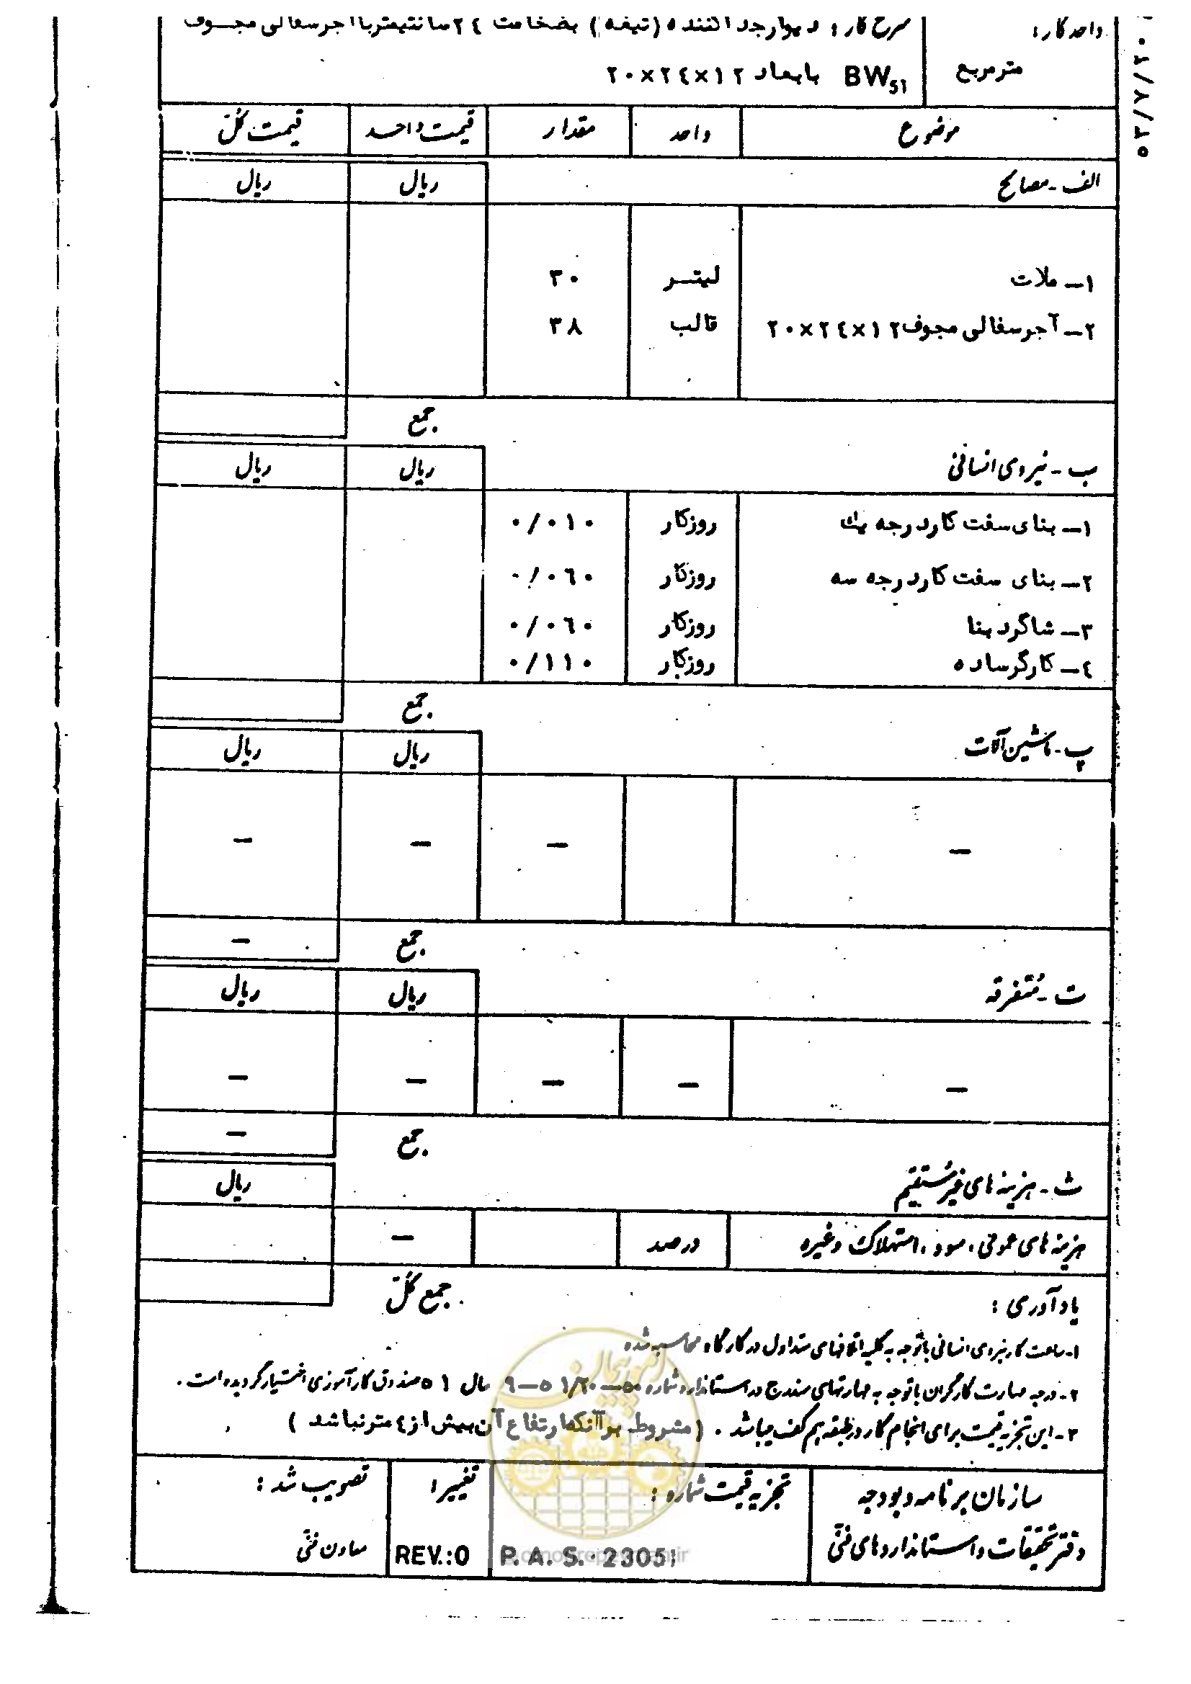 واحد کار: شرح کار: دیوار جدا کننده (تیغه) بضخامت ۲٤ سانتیمتر با آجر سفالی مجوف
مترمربع BW51 بابعاد ۱۲×۲٤×۲۰
۵۳/۷/۲۰
موضوع واحد مقدار قیمت واحد قیمت کل
الف - مصالح ریال ریال
۱- ملات لیتر ۳۰
۲- آجر سفالی مجوف ۱۲×۲٤×۲۰ قالب ۳۸
جمع
ب - نیروی انسانی ریال ریال
۱- بنای سفت کار درجه یک روزکار ۰/۰۱۰
۲- بنای سفت کار درجه سه روزکار ۰/۰٦۰
۳- شاگرد بنا روزکار ۰/۰٦۰
٤- کارگر ساده روزکار ۰/۱۱۰
جمع
پ - ماشین آلات ریال ریال
- - - -
جمع -
ت - متفرقه ریال ریال
- - - - -
جمع -
ث - هزینه های غیر مستقیم ریال
هزینه های عمومی، سود، استهلاک وغیره درصد -
جمع کل
یادآوری :
۱- ساعت کار نیروی انسانی باتوجه به کلیه اتلافهای متداول در کارگاه محاسبه شده
۲- درجه مهارت کارگران باتوجه به مهارتهای مندرج در استاندارد شماره ۵۰-۱/۲۰ ۵-۹ سال ۵۱ صندوق کارآموزی اختیار گردیده است .
۳- این تجزیه قیمت برای انجام کار در طبقه هم کف میباشد . (مشروط بر آنکه ارتفاع آن بیش از ٤ متر نباشد )
سازمان برنامه و بودجه تجزیه قیمت شماره : تغییر: تصویب شد :
دفتر تحقیقات و استانداردهای فنی P. A. S.: 23051 REV.:0 معاون فنی